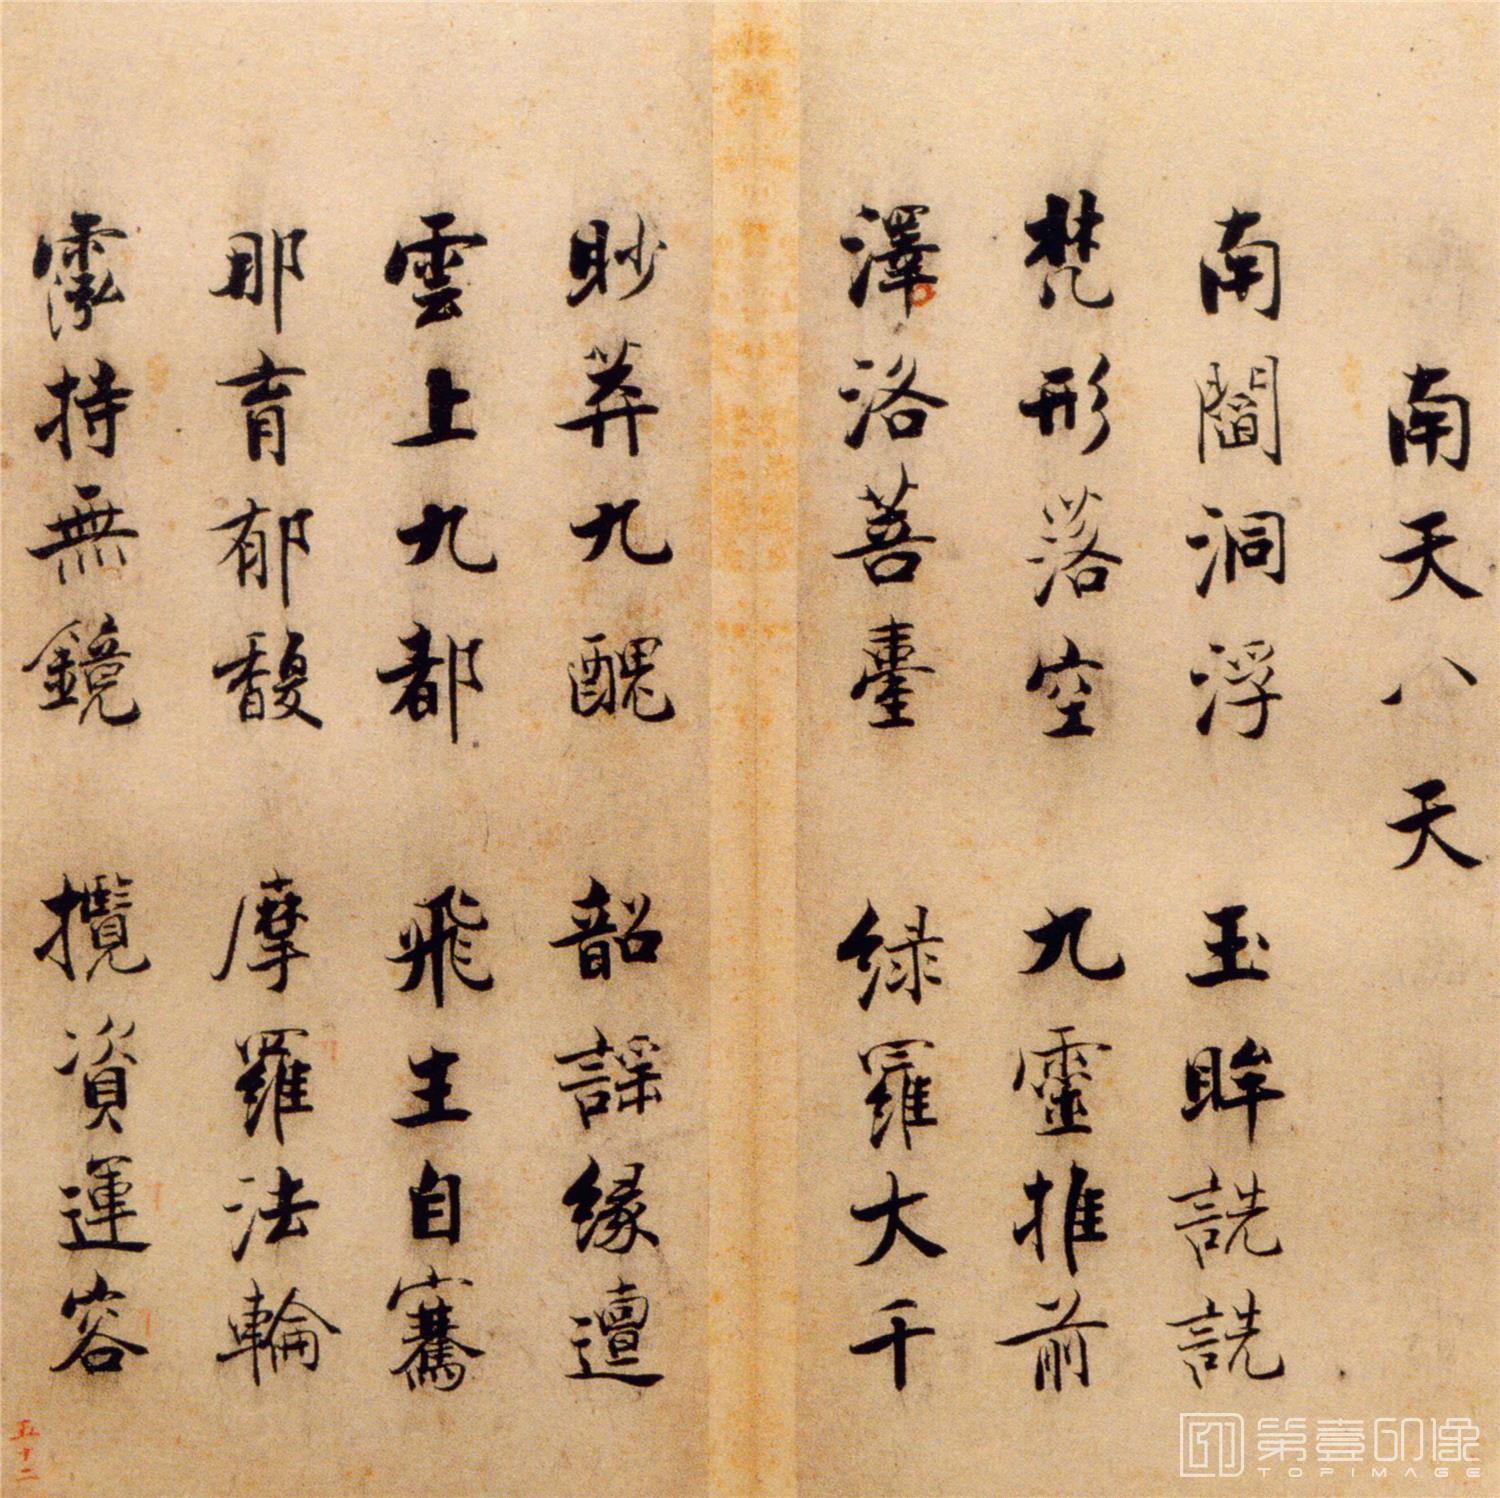 南天八天
南閻洞浮　玉眸詵詵
梵形落空　九靈推前
澤洛菩臺　綠羅大千
眇莽九醜　韶謡緣邅
雲上九都　飛生自騫
那育郁馥　摩羅法輪
霐持無鏡　攬資運容
五十二
第壹印像
TOPIMAGE